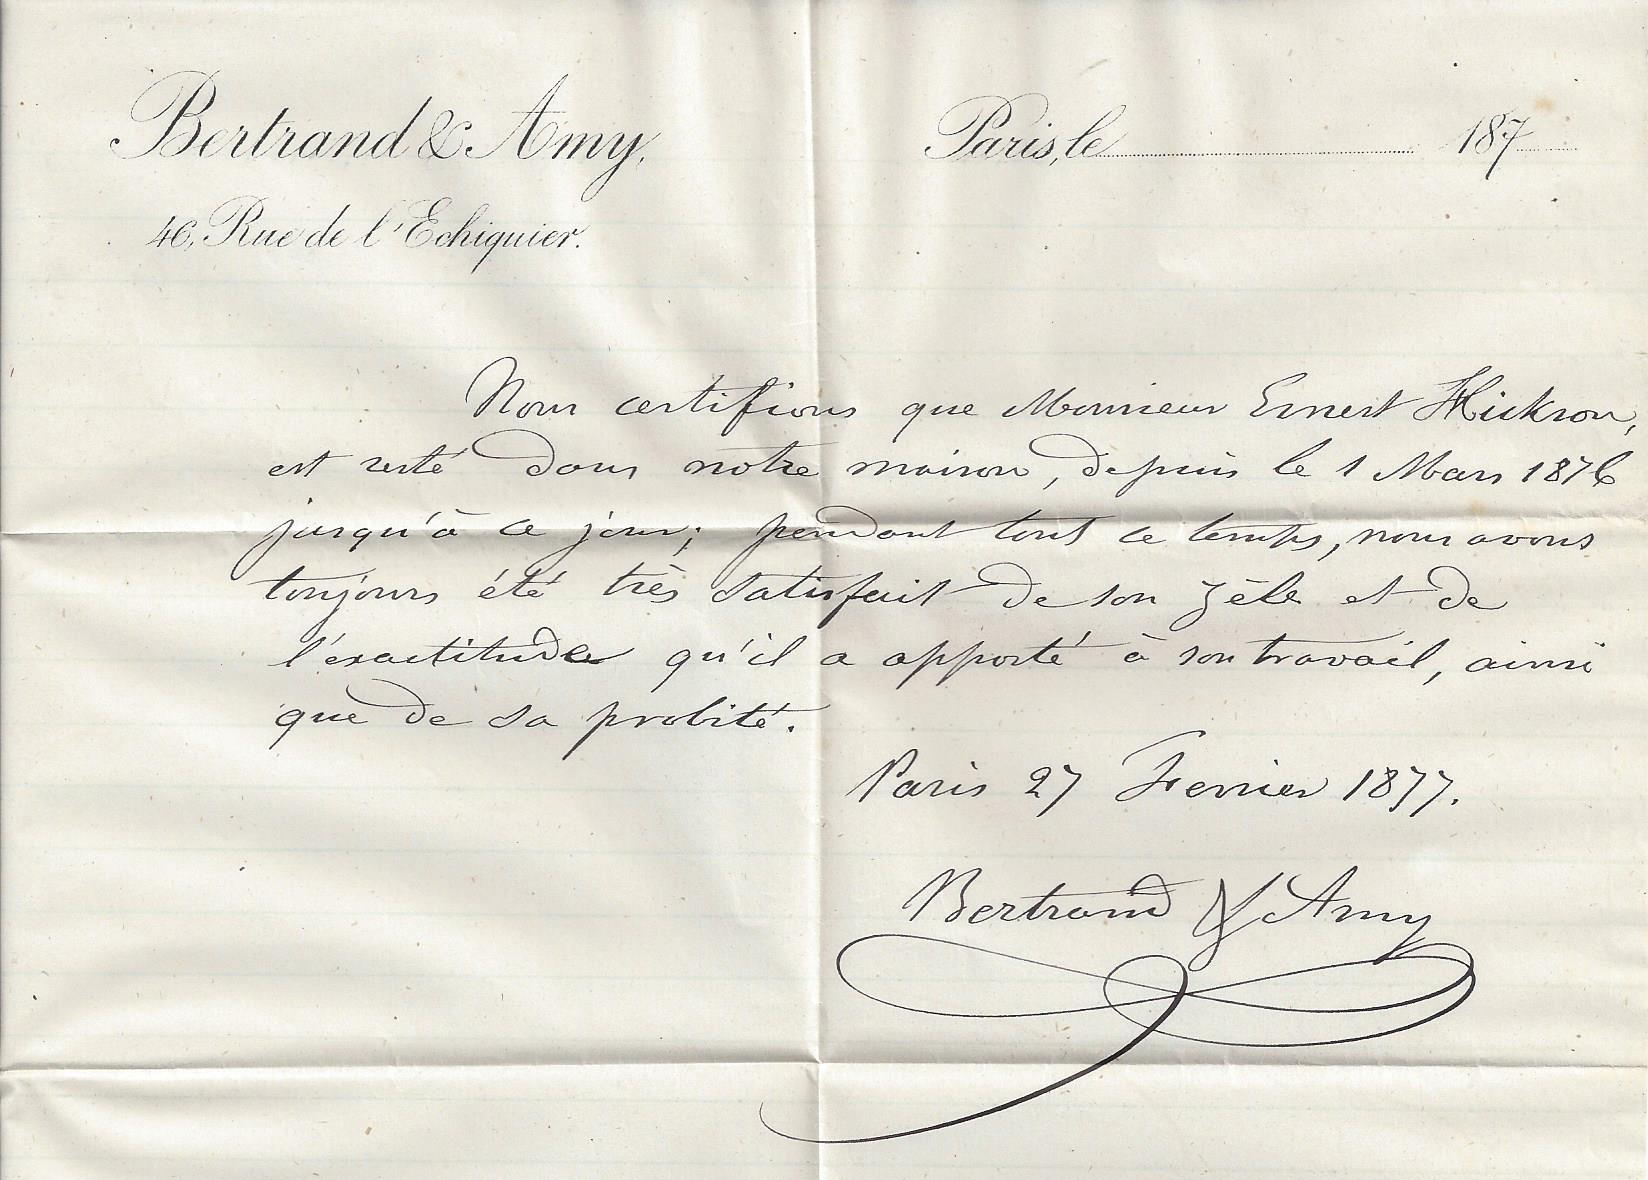 Bertrand & Amy,
Paris, le 187
46, Rue de l'Echiquier.
Nous certifions que Monsieur Ernest Hickson,
est resté dans notre maison, depuis le 1 Mars 1876
jusqu'à ce jour; pendant tout ce temps, nous avons
toujours été très satisfait de son zèle et de
l'exactitude qu'il a apporté à son travail, ainsi
que de sa probité.
Paris 27 Fevrier 1877.
Bertrand & Amy